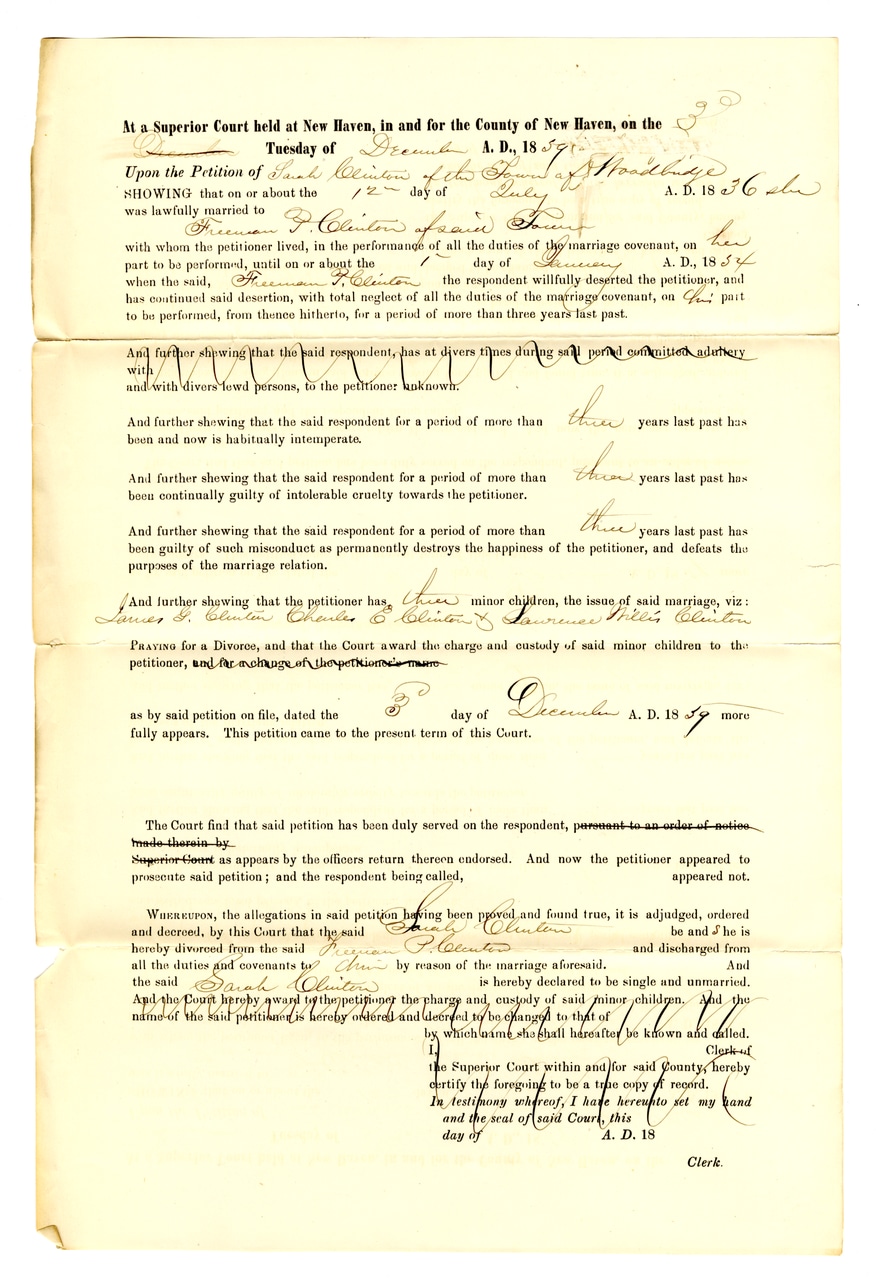 At a Superior Court held at New Haven, in and for the County of New Haven, on the 3d
December Tuesday of December A. D., 18 59
Upon the Petition of Sarah Clinton of the Town of Woodbridge
SHOWING that on or about the 12 day of July A. D. 18 36 she
was lawfully married to
Freeman P. Clinton of said Town
with whom the petitioner lived, in the performance of all the duties of the marriage covenant, on her
part to be performed, until on or about the 1st day of January A. D., 18 54
when the said, Freeman P. Clinton the respondent willfully deserted the petitioner, and
has continued said desertion, with total neglect of all the duties of the marriage covenant, on his part
to be performed, from thence hitherto, for a period of more than three years last past.
And further shewing that the said respondent, has at divers times during said period committed adultery
with
and with divers lewd persons, to the petitioner unknown.
And further shewing that the said respondent for a period of more than three years last past has
been and now is habitually intemperate.
And further shewing that the said respondent for a period of more than three years last past has
been continually guilty of intolerable cruelty towards the petitioner.
And further shewing that the said respondent for a period of more than three years last past has
been guilty of such misconduct as permanently destroys the happiness of the petitioner, and defeats the
purposes of the marriage relation.
And further shewing that the petitioner has three minor children, the issue of said marriage, viz:
James G. Clinton Charles E Clinton & Lawrence Willis Clinton
PRAYING for a Divorce, and that the Court award the charge and custody of said minor children to the
petitioner, and for a change of the petitioner's name
as by said petition on file, dated the 3d day of December A. D. 18 59 more
fully appears. This petition came to the present term of this Court.
The Court find that said petition has been duly served on the respondent, pursuant to an order of notice
made therein by
Superior Court as appears by the officers return thereon endorsed. And now the petitioner appeared to
prosecute said petition; and the respondent being called, appeared not.
WHEREUPON, the allegations in said petition having been proved and found true, it is adjudged, ordered
and decreed, by this Court that the said Sarah Clinton be and She is
hereby divorced from the said Freeman P. Clinton and discharged from
all the duties and covenants to him by reason of the marriage aforesaid. And
the said Sarah Clinton is hereby declared to be single and unmarried.
And the Court hereby award to the petitioner the charge and custody of said minor children. And the
name of the said petitioner is hereby ordered and decreed to be changed to that of
by which name she shall hereafter be known and called.
I, Clerk of
the Superior Court within and for said County, hereby
certify the foregoing to be a true copy of record.
In testimony whereof, I have hereunto set my hand
and the seal of said Court, this
day of A. D. 18
Clerk.